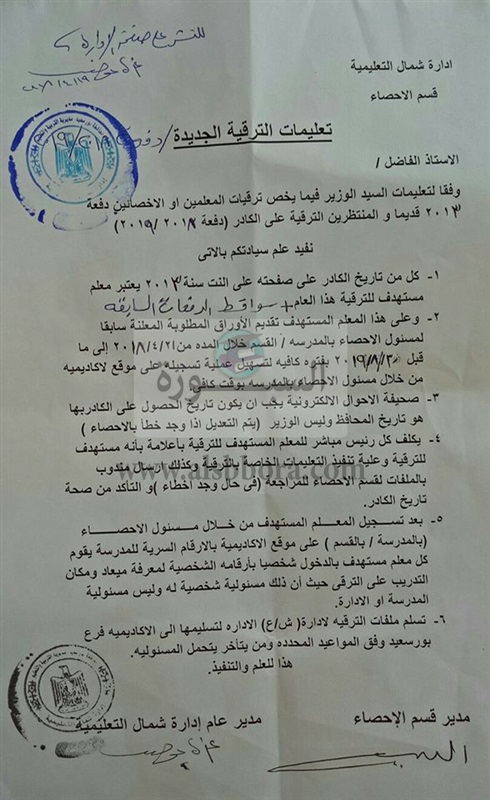 للنشر على صفحة الإدارة
ادارة شمال التعليمية
قسم الاحصاء
تعليمات الترقية الجديدة / دفعة ٢٠١٩
الاستاذ الفاضل /
وفقا لتعليمات السيد الوزير فيما يخص ترقيات المعلمين او الاخصائين دفعة
٢٠١٣ قديما و المنتظرين الترقية على الكادر (دفعة ٢٠١٨ /٢٠١٩)
نفيد علم سيادتكم بالاتى
١- كل من تاريخ الكادر على صفحته على النت سنة ٢٠١٣ يعتبر معلم
مستهدف للترقية هذا العام + سواقط الدفعات السابقة
٢- وعلى هذا المعلم المستهدف تقديم الأوراق المطلوبة المعلنة سابقا
لمسئول الاحصاء بالمدرسه / القسم خلال المده من ٢٠١٨/٤/٢١ إلى ما
قبل ٢٠١٩/٨/٣٠ بفتوه كافيه لتسهيل عملية تسجيلة على موقع لاكاديميه
من خلال مسئول الاحصاء بالمدرسه بوقت كافى
٣- صحيفة الاحوال الالكترونية يجب ان يكون تاريخ الحصول على الكادربها
هو تاريخ المحافظ وليس الوزير (يتم التعديل اذا وجد خطا بالاحصاء )
٤- يكلف كل رئيس مباشر للمعلم المستهدف للترقية بأعلامة بأنه مستهدف
للترقية وعلية تنفيذ التعليمات الخاصة بالترقية وكذلك ارسال مندوب
بالملفات لقسم الاحصاء للمراجعة (فى حال وجد اخطاء )و التأكد من صحة
تاريخ الكادر.
السبورة
www.alsbbora.com
٥- بعد تسجيل المعلم المستهدف من خلال مسئول الاحصاء
(بالمدرسة / بالقسم ) على موقع الاكاديمية بالارقام السرية للمدرسة يقوم
كل معلم مستهدف بالدخول شخصيا بأرقامه الشخصية لمعرفة ميعاد ومكان
التدريب على الترقى حيث أن ذلك مسئولية شخصية له وليس مسئولية
المدرسة او الادارة.
٦- تسلم ملفات الترقيه لادارة( ش/ع) الاداره لتسليمها الى الاكاديميه فرع
بورسعيد وفق المواعيد المحدده ومن يتأخر يتحمل المسئوليه.
هذا للعلم والتنفيذ.
مدير قسم الإحصاء
مدير عام إدارة شمال التعليمية